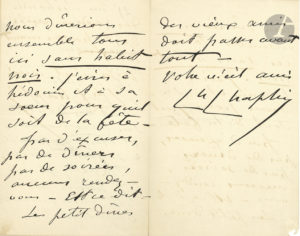 nous dînerions
ensemble tous
ici sans habit
noir. J'écris à
et à sa
soeur pour qu'il
soit de la fête.
pas d'excuses,
pas de dîners
pas de soirées,
aucuns rendez-
vous - Est-ce dit -
Le petit dîner
des vieux amis
doit passer avant
tout -
Votre vieil ami
Ch Chaplin